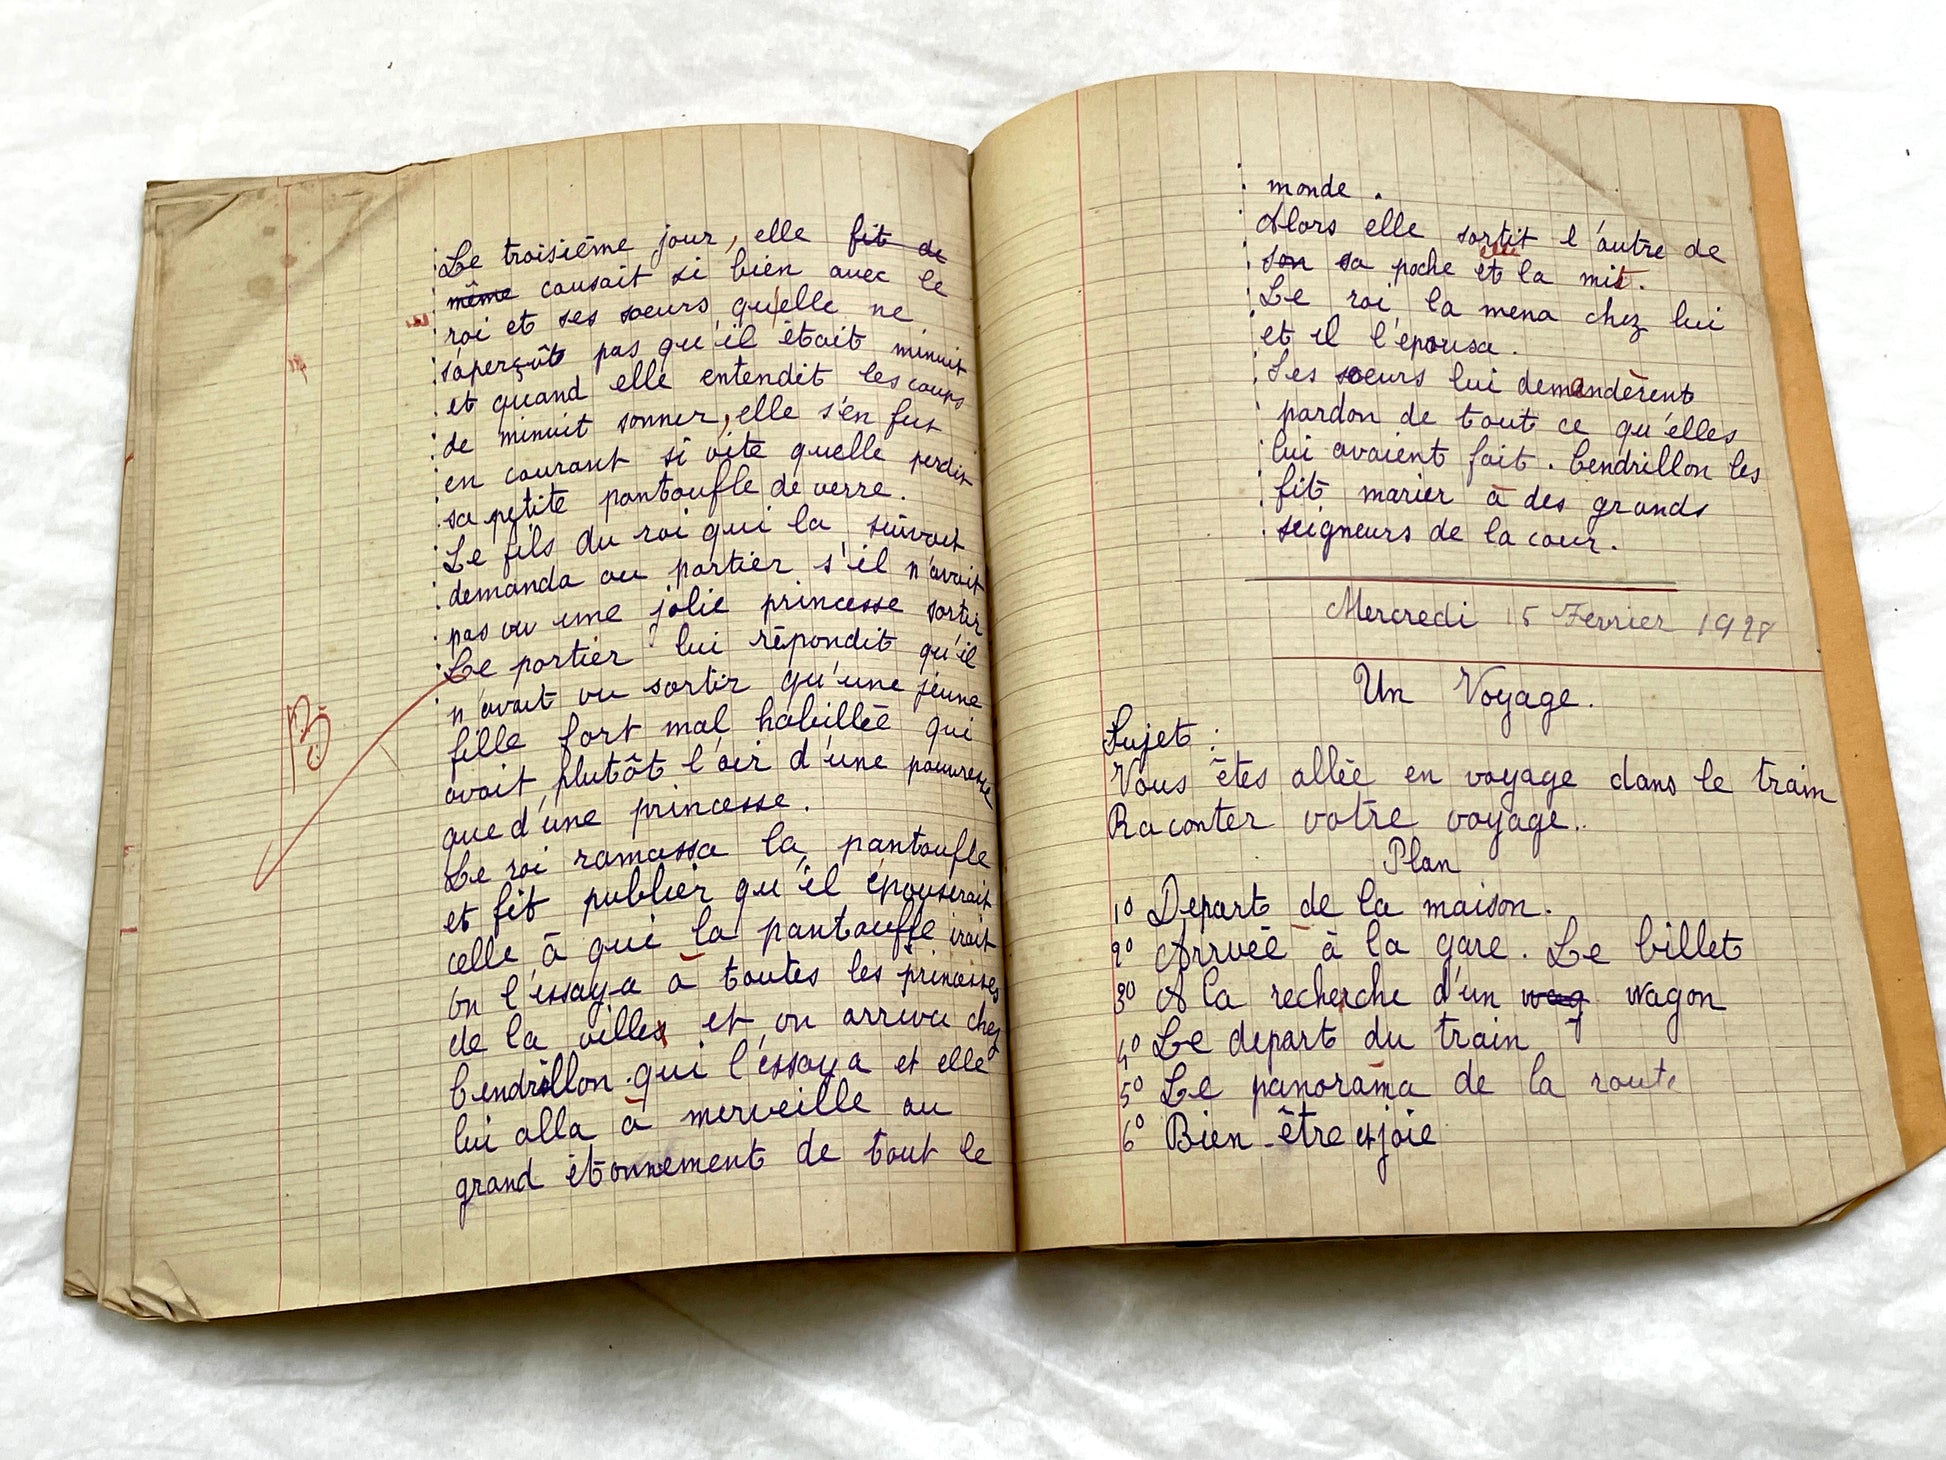 Le troisième jour, elle fit de
même causait si bien avec le
roi et ses soeurs, qu'elle ne
s'aperçût pas qu'il était minuit
et quand elle entendit les coups
de minuit sonner, elle s'en fut
en courant si vite quelle perdit
sa petite pantoufle de verre.
Le fils du roi qui la suivait
demanda au portier s'il n'avait
pas vu une jolie princesse sortir
Le portier lui répondit qu'il
n'avait vu sortir qu'une jeune
fille fort mal habillée qui
avait plutôt l'air d'une pauvresse
que d'une princesse.
Le roi ramassa la pantoufle
et fit publier qu'il épouserait
celle à qui la pantouffe irait
on l'essaya à toutes les princesses
de la villes et on arriva chez
Cendrillon qui l'essaya et elle
lui alla à merveille au
grand étonnement de tout le
B
monde.
Alors elle sortit l'autre de
son sa poche et la mit.
Le roi la mena chez lui
et il l'épousa.
Ses soeurs lui demandèrent
pardon de tout ce qu'elles
lui avaient fait. Cendrillon les
fit marier à des grands
seigneurs de la cour.
Mercredi 15 Fevrier 1928
Un Voyage.
Sujet :
Vous êtes allée en voyage dans le train
Raconter votre voyage..
Plan
1º Depart de la maison.
2º Arrivée à la gare. Le billet
3º A la recherche d'un wag wagon
4º Le depart du train
5º Le panorama de la route
6º Bien-être et joie